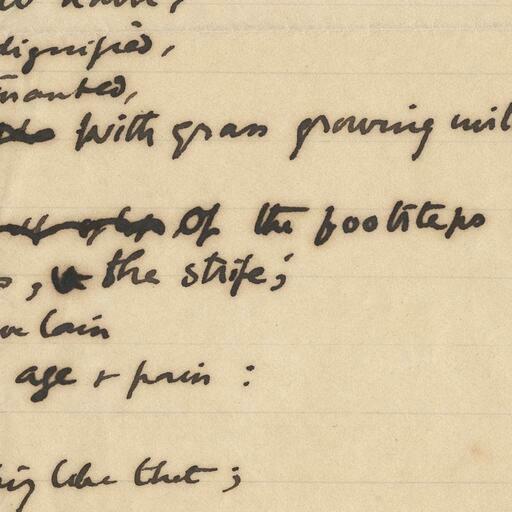 dignified,
with grass growing
Of the footsteps
, the strife;
lain
age + pain :
like that ;